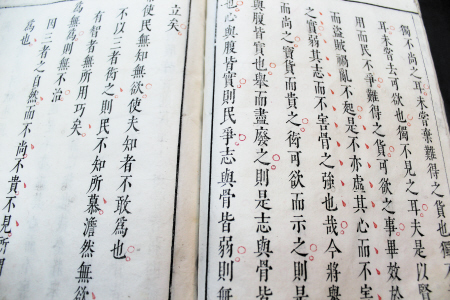 獨不尚之耳未嘗棄難得之貨也獨
耳未嘗去可欲也獨不見之耳夫是以賢
用而民不爭難得之貨可欲之事畢效於
而盜賊禍亂不起是不亦虛其心而不害
之實弱其志而不害骨之強也哉今將舉
而尚之寶貨而貴之衒可欲而示之則是
與腹皆實也舉而盡廢之則是志與骨皆
也心與腹皆實則民爭志與骨皆弱則無
立矣
使民無知無欲使夫知者不敢為也
不以三者衒之則民不知所慕澹然無欲
有智者無所用巧矣
為無為則無不治
因三者之自然而不尚不貴不見所謂
為也